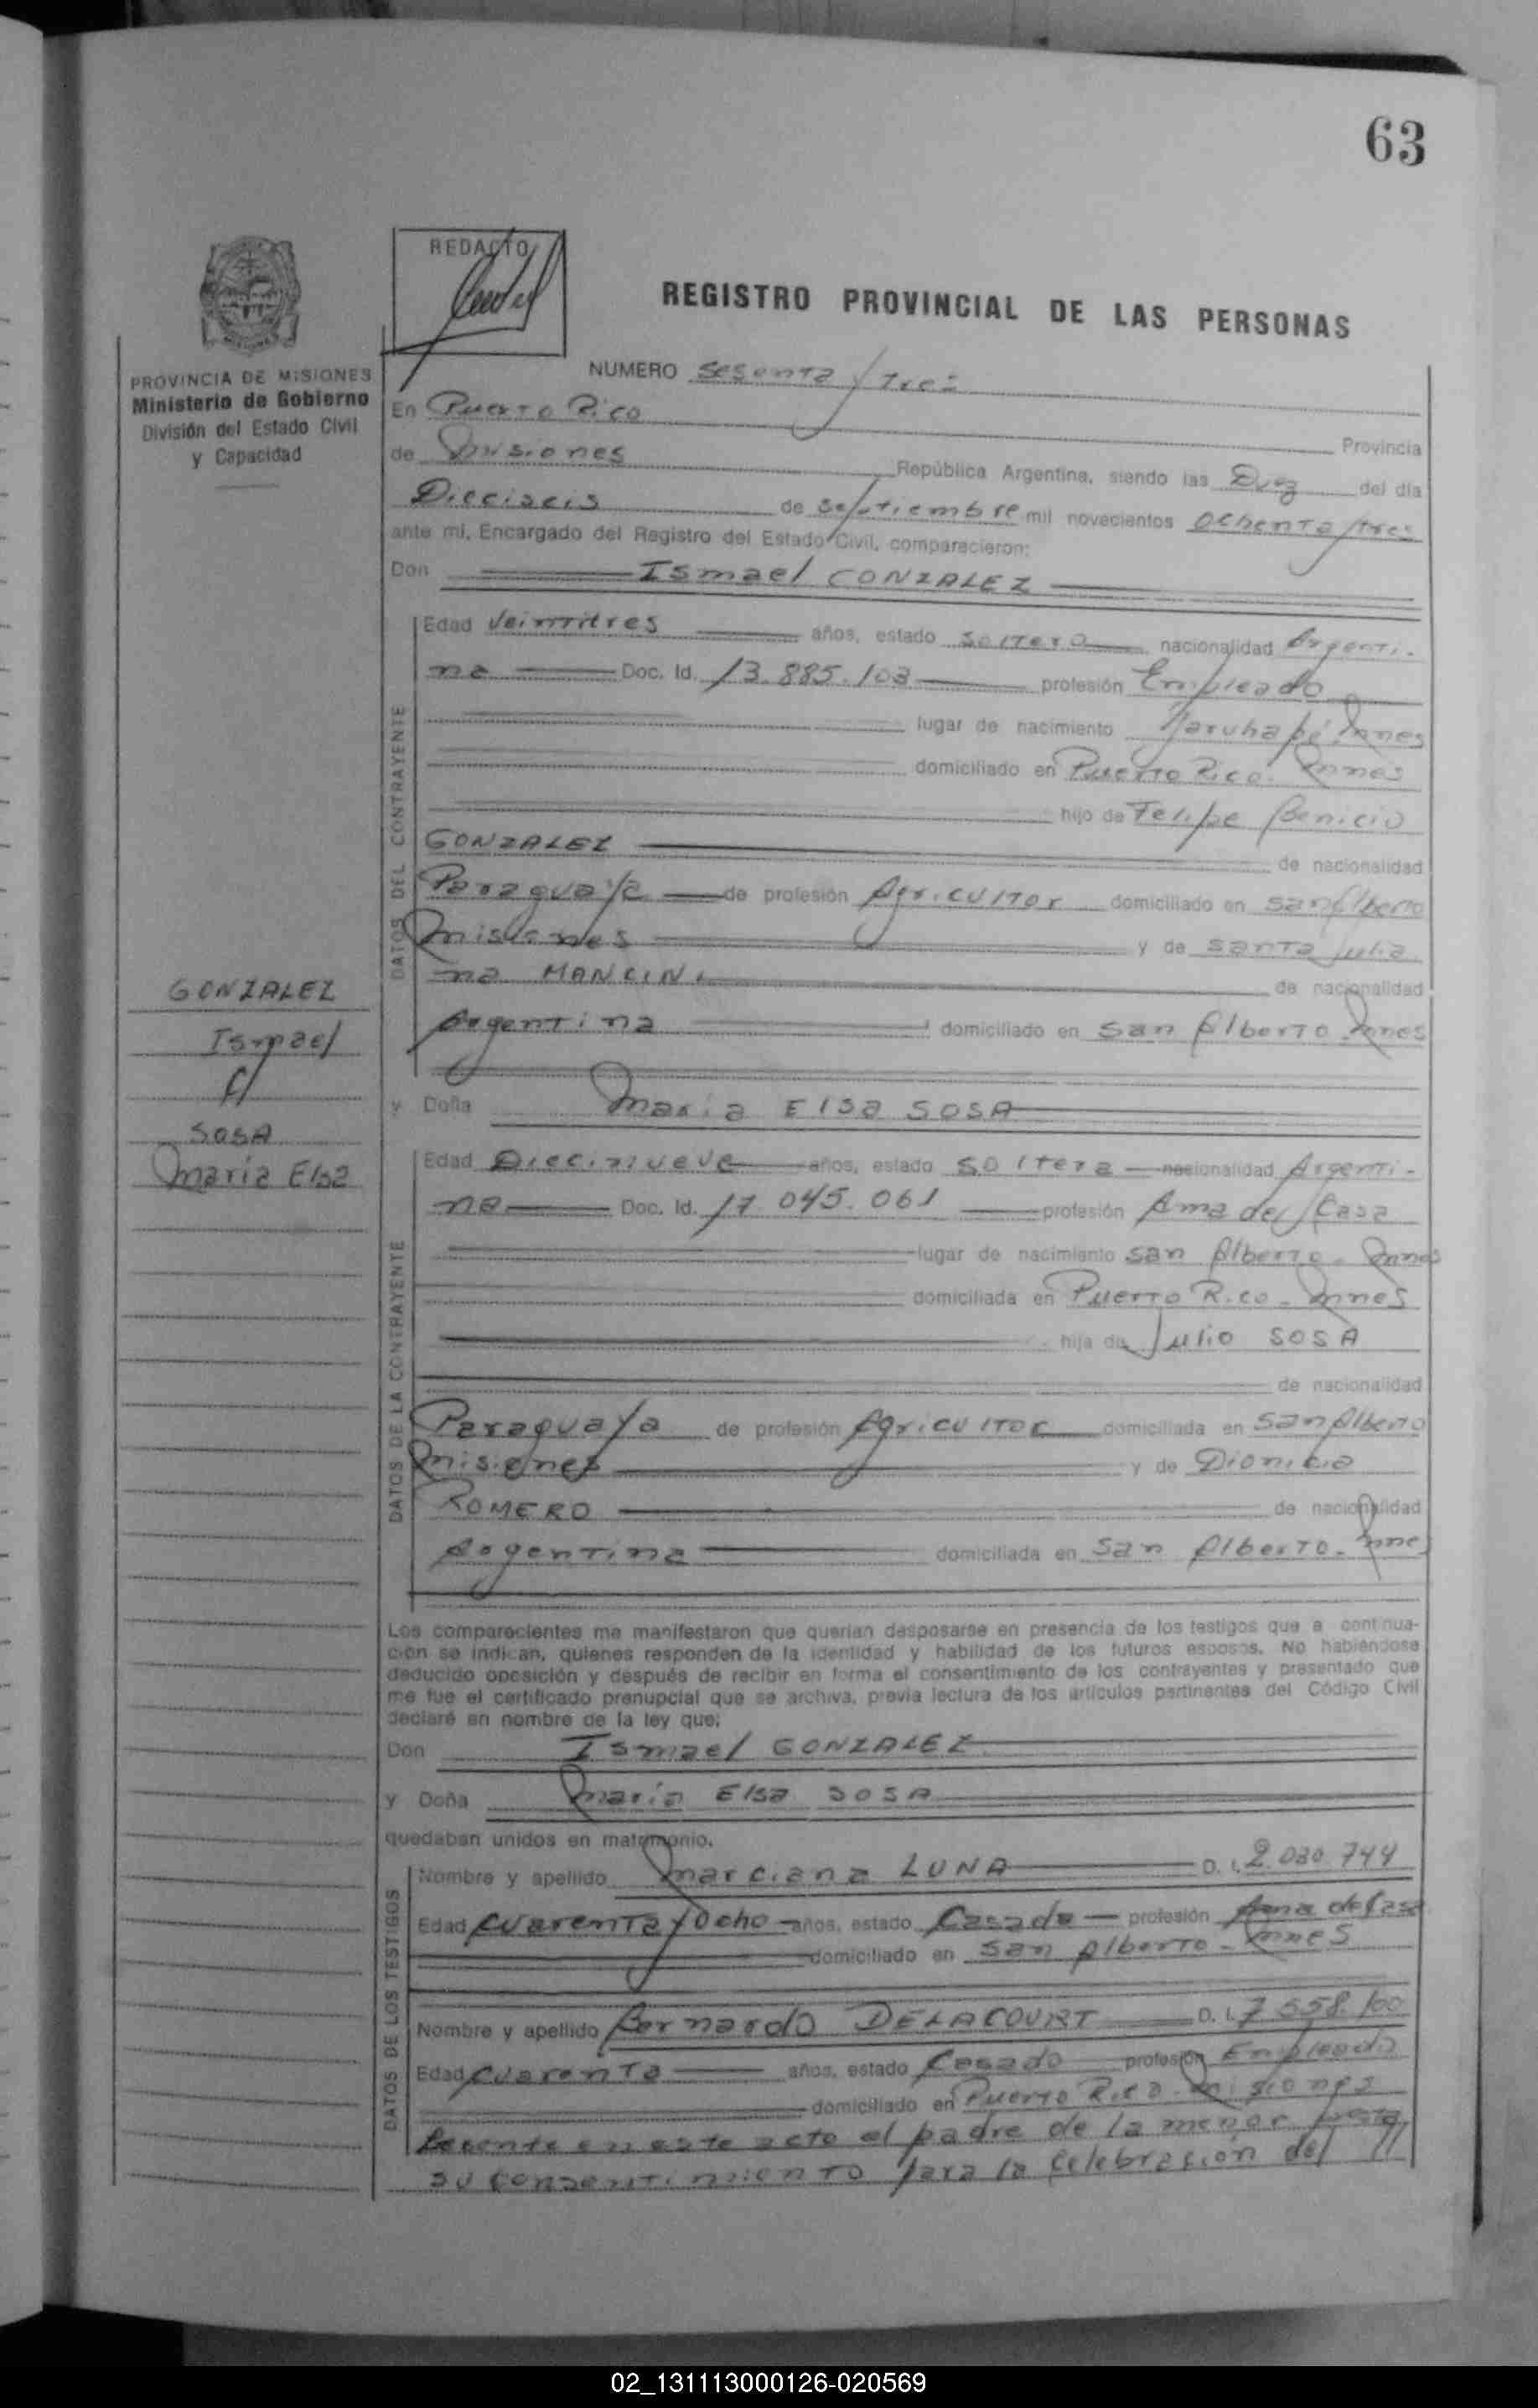 63
REDACTO
REGISTRO PROVINCIAL DE LAS PERSONAS
PROVINCIA DE MISIONES
Ministerio de Gobierno
División del Estado Civil
y Capacidad
NUMERO Sesenta y tres
En Puerto Rico Provincia
de Misiones República Argentina, siendo las Diez del día
Dieciseis de Septiembre mil novecientos ochenta y tres
ante mí, Encargado del Registro del Estado Civil, comparecieron:
Don Ismael GONZALEZ
DATOS DEL CONTRAYENTE
Edad Veintitres años, estado soltero nacionalidad Argenti-
na Doc. Id. 13.885.103 profesión Empleado
lugar de nacimiento Garuhapé. Mnes
domiciliado en Puerto Rico. Mnes
hijo de Felipe Benicio
GONZALEZ de nacionalidad
Paraguaya de profesión Agricultor domiciliado en San Alberto
Misiones y de Santa Julia
na MANCINI de nacionalidad
Argentina domiciliado en San Alberto. Mnes
GONZALEZ
Ismael
c/
SOSA
Maria Elsa
y Doña Maria Elsa SOSA
DATOS DE LA CONTRAYENTE
Edad Diecinueve años, estado soltera nacionalidad Argenti-
na Doc. Id. 17.045.061 profesión Ama de Casa
lugar de nacimiento San Alberto - Mnes
domiciliada en Puerto Rico - Mnes
hija de Julio SOSA
de nacionalidad
Paraguaya de profesión Agricultor domiciliada en San Alberto
Misiones y de Dionicia
ROMERO de nacionalidad
Argentina domiciliada en San Alberto - Mnes
Los comparecientes me manifestaron que querían desposarse en presencia de los testigos que a continua-
ción se indican, quienes responden de la identidad y habilidad de los futuros esposos. No habiéndose
deducido oposición y después de recibir en forma el consentimiento de los contrayentes y presentado que
me fue el certificado prenupcial que se archiva, previa lectura de los artículos pertinentes del Código Civil
declaré en nombre de la ley que:
Don Ismael GONZALEZ
y Doña Maria Elsa SOSA
quedaban unidos en matrimonio.
DATOS DE LOS TESTIGOS
Nombre y apellido Marciana LUNA D. I. 2.030.744
Edad cuarenta y Ocho años, estado Casada profesión Ama de Casa
domiciliado en San Alberto - Mnes
Nombre y apellido Bernardo DELACOURT D. I. 7.558.100
Edad cuarenta años, estado Casado profesión Empleado
domiciliado en Puerto Rico - Misiones
Presente en este acto el padre de la menor presta
su consentimiento para la celebración del //
02_131113000126-020569